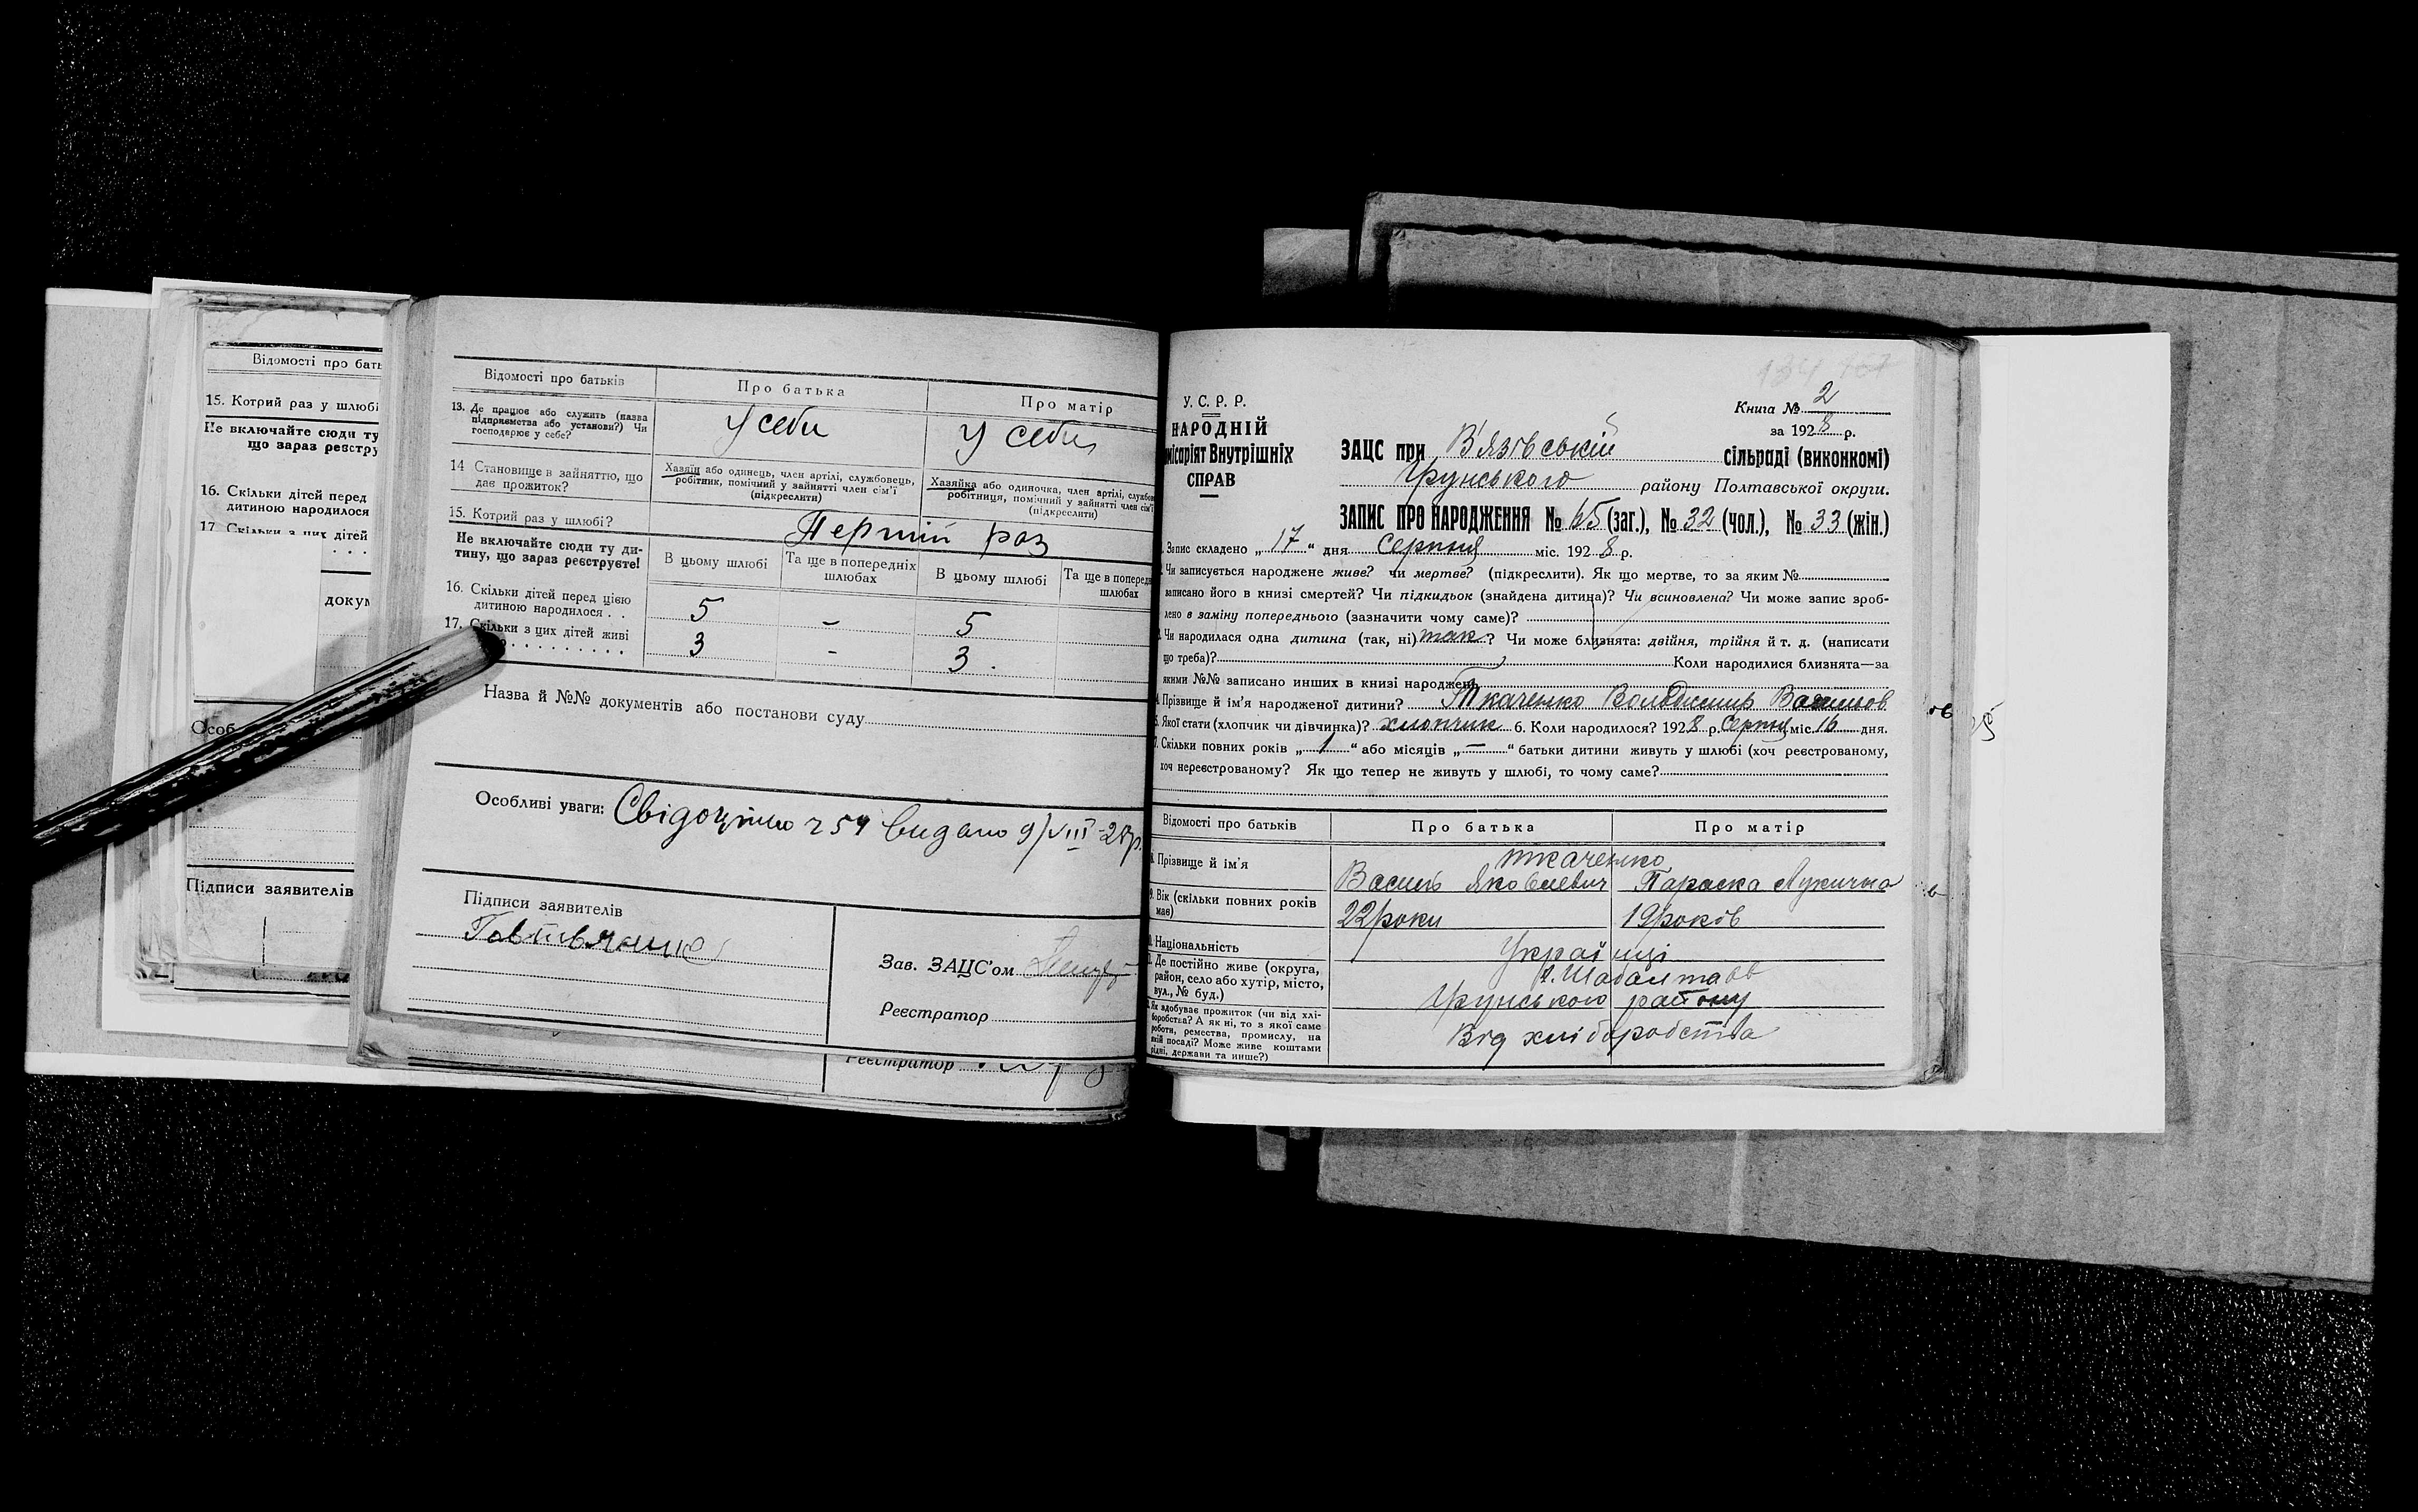 Відомості про бать
15. Котрий раз у шлюбі
Не включайте сюди ту
що зараз реєстру
16. Скільки дітей перед
дитиною народилося
17. Скільки з цих дітей
докум
Особ
Підписи заявителів
Відомості про батьків
Про батька
Про матір
13. Де працює або служить (назва
підприємства або установи?) Чи
господарює у себе?
У себи
У себи
14 Становище в зайняттю, що
дає прожиток?
Хазяїн або одинець, член артілі, службовець,
робітник, помічний у зайнятті член сім'ї
(підкреслити)
Хазяйка або одиночка, член артілі, службо
робітниця, помічний у зайнятті член сім'ї
(підкреслити)
15. Котрий раз у шлюбі?
Перший раз
Не включайте сюди ту ди-
тину, що зараз реєструєте!
В цьому шлюбі
Та ще в попередніх
шлюбах
В цьому шлюбі
Та ще в поперед
шлюбах
16. Скільки дітей перед цією
дитиною народилося . .
5 - 5
17. Скільки з цих дітей живі
3 - 3.
Назва й №№ документів або постанови суду
Особливі уваги: Свідоцтво 254 видано 9/VIII-28р.
Підписи заявителів
Зав. ЗАЦС'ом
Реєстратор
Реєстратор
У. С. Р. Р.
НАРОДНІЙ
місаріят Внутрішніх
СПРАВ
Книга № 2
за 1928 р.
ЗАЦС при В'язівській сільраді (виконкомі)
Грунського району Полтавської округи.
ЗАПИС ПРО НАРОДЖЕННЯ № 65 (заг.), № 32 (чол.), № 33 (жін.)
Запис складено „17“ дня Серпня міс. 1928 р.
Чи записується народжене живе? чи мертве? (підкреслити). Як що мертве, то за яким №
записано його в книзі смертей? Чи підкидьок (знайдена дитина)? Чи всиновлена? Чи може запис зроб-
лено в заміну попереднього (зазначити чому саме)?
Чи народилася одна дитина (так, ні) так? Чи може близнята: двійня, трійня й т. д. (написати
що треба)? Коли народилися близнята—за
якими №№ записано инших в книзі народжень
Прізвище й ім'я народженої дитини? Ткаченко Володимир Васильов
Якої стати (хлопчик чи дівчинка)? хлопчик 6. Коли народилося? 1928 р. Серпня міс. 16 дня.
Скільки повних років „1“ або місяців „—“ батьки дитини живуть у шлюбі (хоч реєстрованому,
хоч нереєстрованому? Як що тепер не живуть у шлюбі, то чому саме?
Відомості про батьків
Про батька
Про матір
Прізвище й ім'я
ткаченко
Василь Яковлевич
Параска Лукична
9. Вік (скільки повних років
має)
22 роки
19 років
Національність
Українці
Де постійно живе (округа,
район, село або хутір, місто,
вул., № буд.)
Грунського району
Як здобуває прожиток (чи від хлі-
боробства? А як ні, то з якої саме
роботи, ремества, промислу, на
якій посаді? Може живе коштами
рідні, держави та инше?)
Від хліборобства